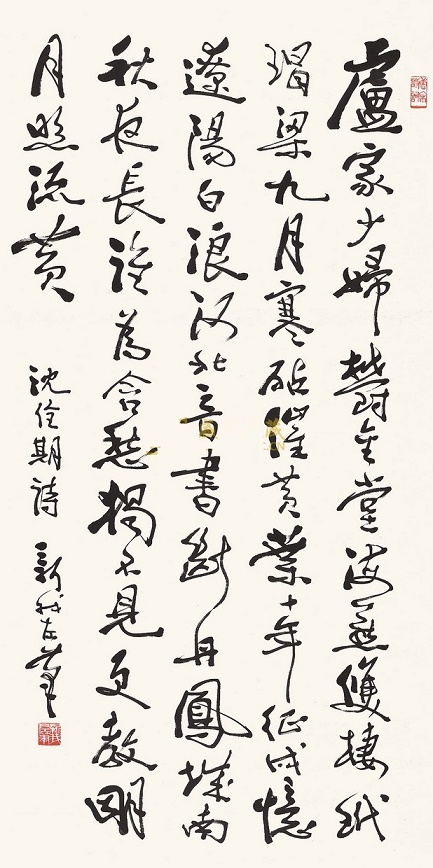 盧家少婦鬱金堂海燕雙棲玳
瑁梁九月寒砧催黄葉十年征戍憶
遼陽白浪河北音書斷丹鳳城南
秋夜長誰為含愁獨不見更教明
月照流黄
沈佺期詩 新我左筆